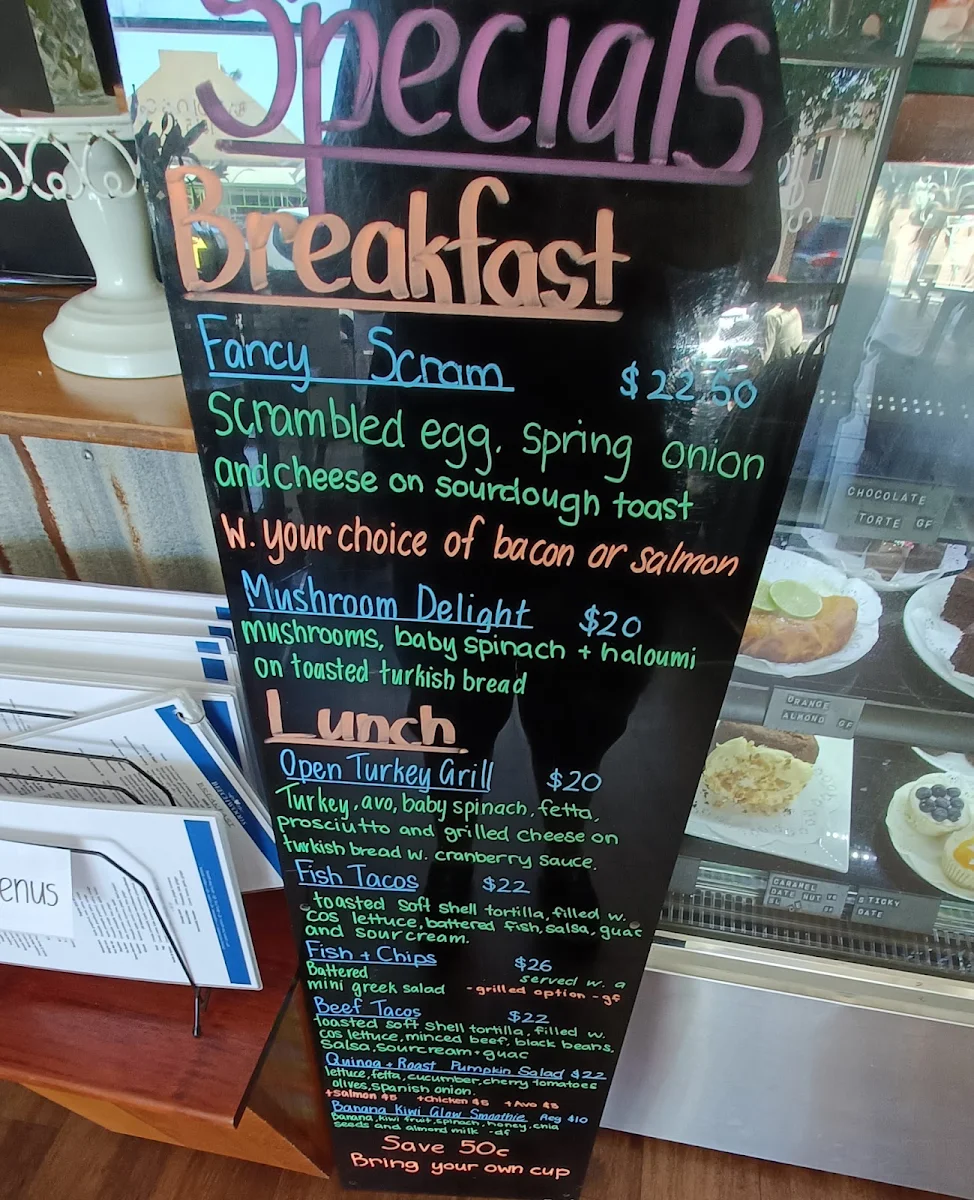 Specials
Breakfast
Fancy Scram $22.50
Scrambled egg, spring onion
and cheese on sourdough toast
W. your choice of bacon or salmon
Mushroom Delight $20
mushrooms, baby spinach + haloumi
on toasted turkish bread
Lunch
Open Turkey Grill $20
Turkey, avo, baby spinach, fetta,
prosciutto and grilled cheese on
turkish bread w. cranberry sauce.
Fish Tacos $22
toasted soft shell tortilla, filled w.
cos lettuce, battered fish, salsa, guac
and sourcream.
Fish + Chips $26
Battered served w. a
mini greek salad - grilled option - gf
Beef Tacos $22
toasted soft shell tortilla, filled w.
cos lettuce, minced beef, black beans,
salsa, sourcream + guac
Quinoa + Roast Pumpkin Salad $22
lettuce, fetta, cucumber, cherry tomatoes
olives, spanish onion.
+Salmon $5 +chicken $5 +Avo $5
Banana Kiwi Glow Smoothie Reg $10
Banana, kiwi fruit, spinach, honey, chia
seeds and almond milk - df
Save 50c
Bring your own cup
enus
CHOCOLATE
TORTE GF
ORANGE
ALMOND GF
CARAMEL
DATE NUT
STICKY
DATE